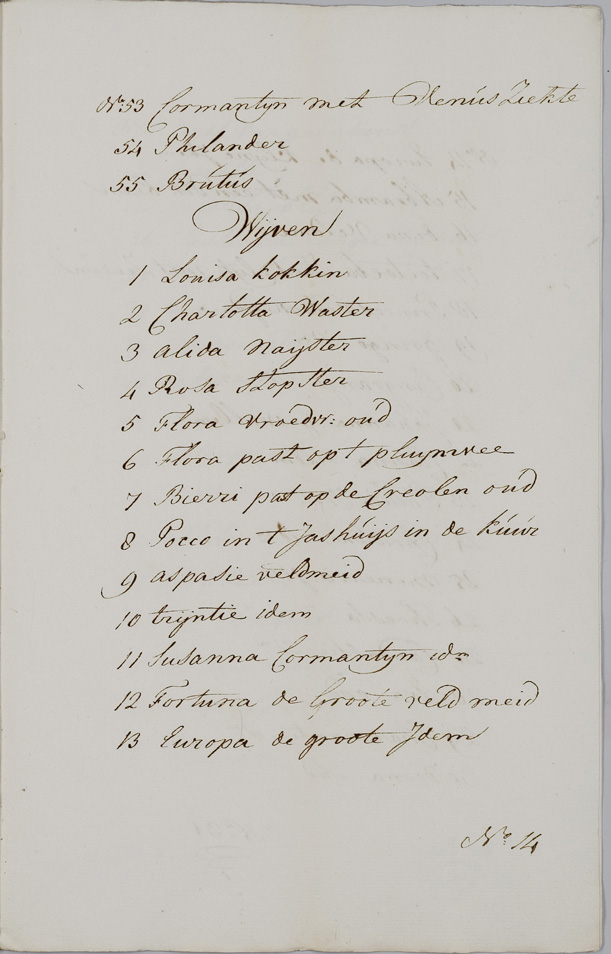 No. 53 Cormantyn met Venús Ziekte
54 Philander
55 Brútús
Wijven
1 Louisa kokkin
2 Charlotta Waster
3 alida Naijster
4 Rosa Stopster
5 Flora vroedvr: oúd
6 Flora past op t pluymvee
7 Bierri past op de Creolen oúd
8 Pocco in t Jashúijs in de kúúr
9 aspasie veldmeid
10 trijntie idem
11 Susanna Cormantyn idm
12 Fortuna de Groote veld meid
13 Europa de groote Idem
No. 14